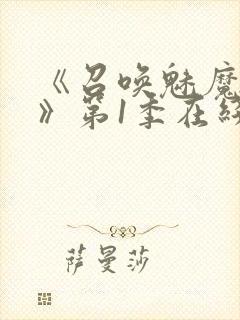 《召唤魅魔
》第1季在线
萨曼莎